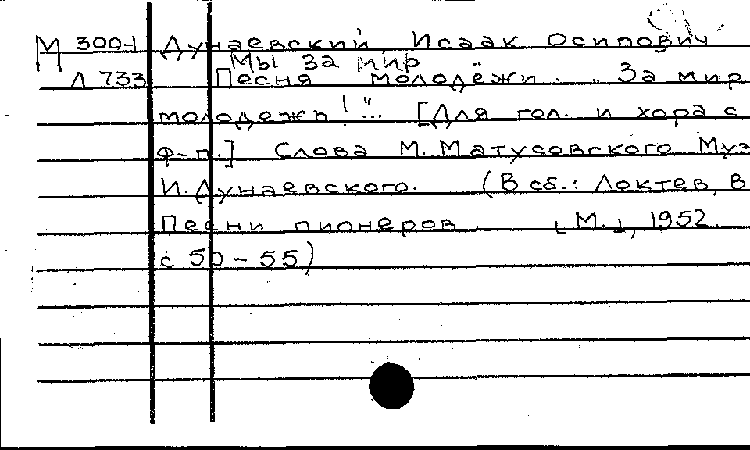 М 300-1 Дунаевский, Исаак Осипович
Мы за мир
Л 733 Песня молодёжи. „За мир
молодежь!"... [Для гол. и хора с
ф-п.] Слова М. Матусовского Муз
И. Дунаевского. (В сб.: Локтев, В
Песни пионеров [М.], 1952.
с 50-55)